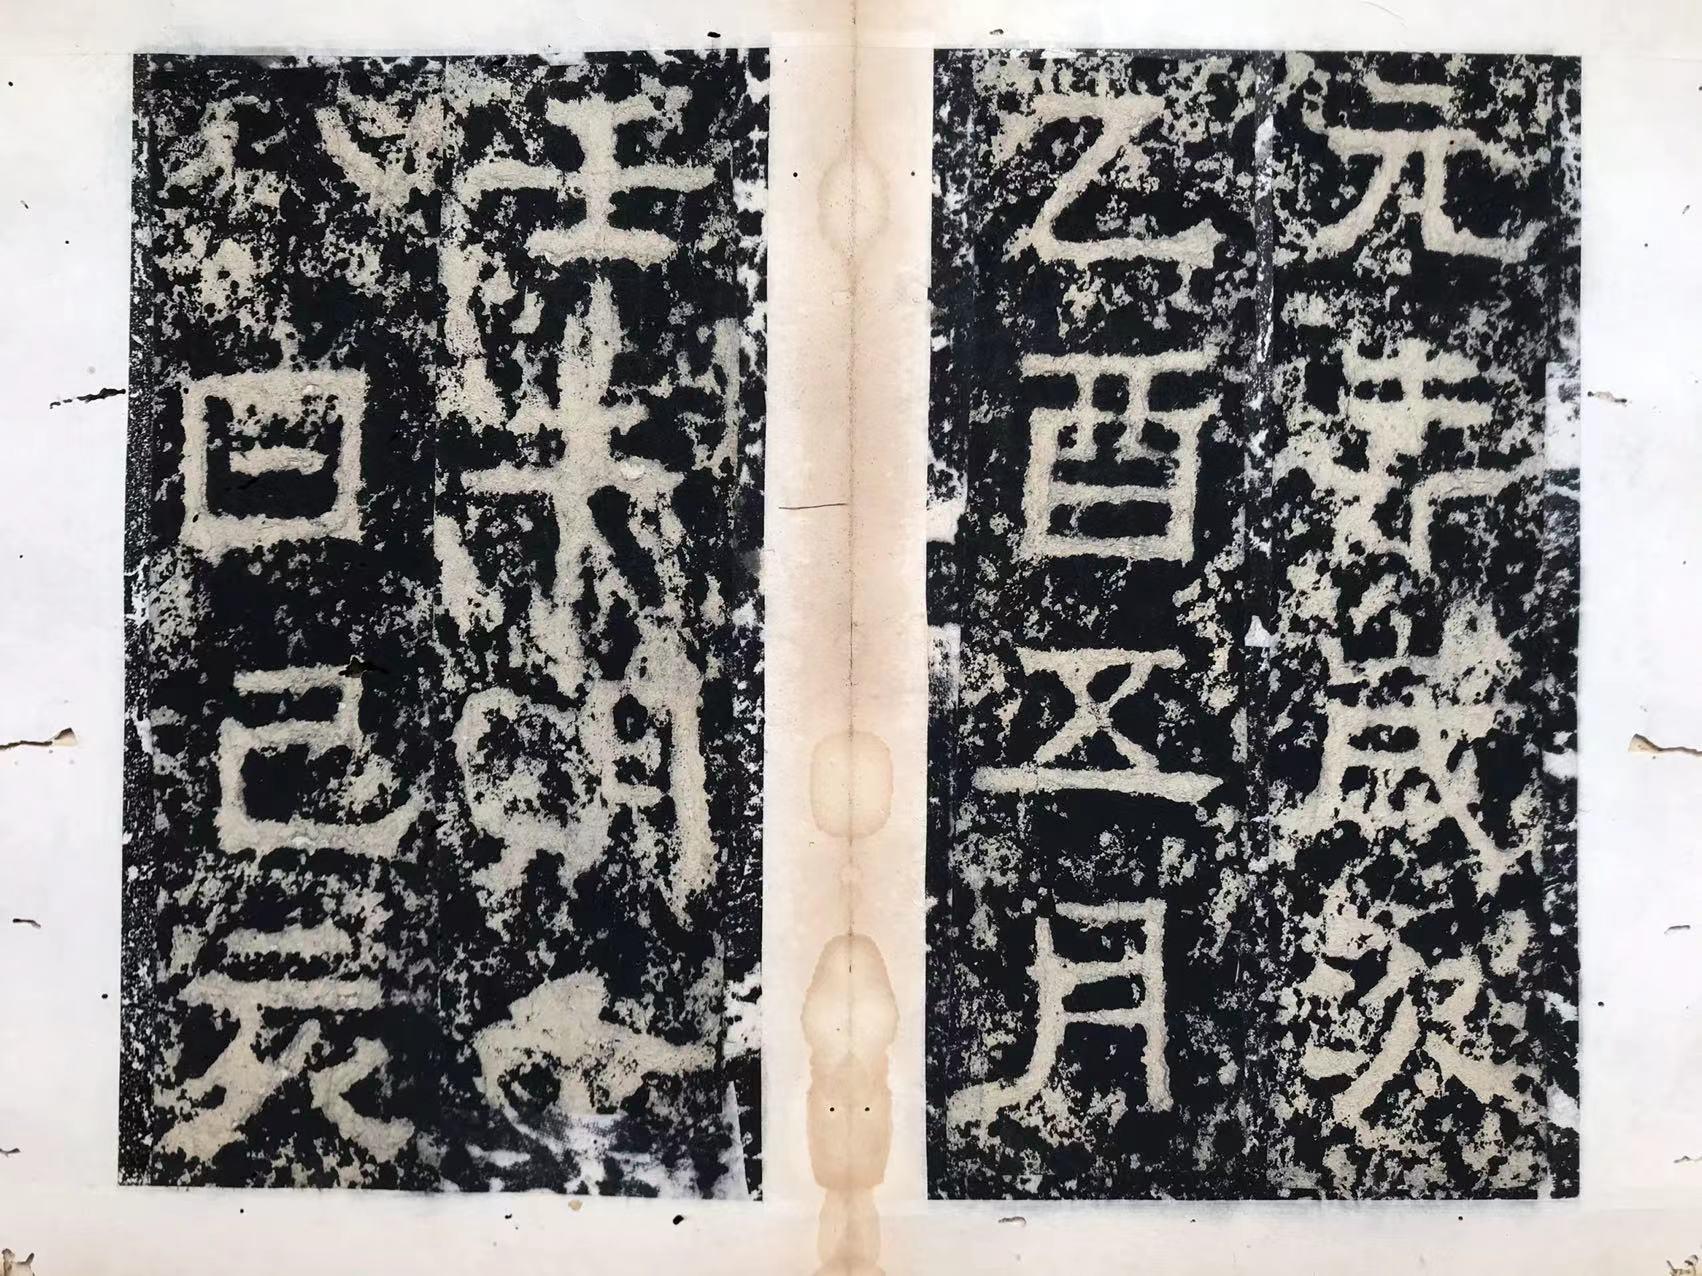 元年歲次
乙酉五月
壬未朔
日己亥